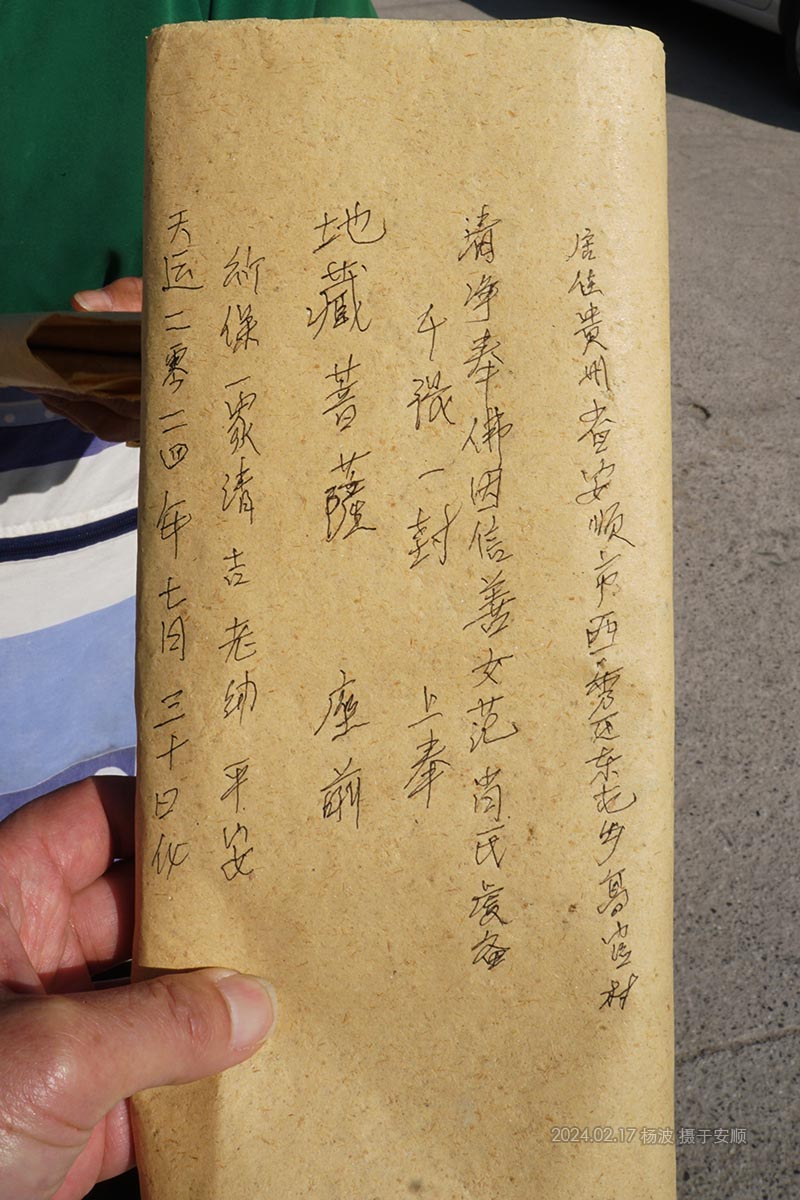 居住贵州省安顺市西秀区东屯乡高笠村
清净奉佛因信善女范肖氏虔备
千张一封 上奉
地藏菩萨 座前
祈保一家清吉老幼平安
天运二零二四年七月三十日化
2024.02.17 杨波 摄于安顺